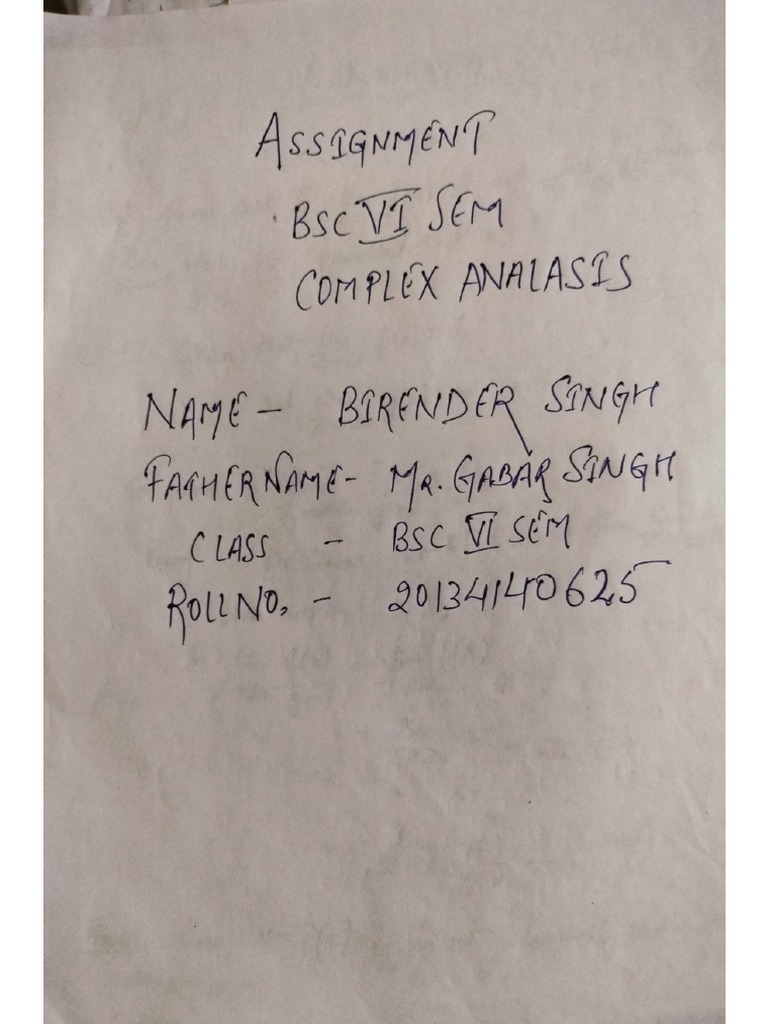 ASSIGNMENT
BSC VI SEM
COMPLEX ANALASIS
NAME - BIRENDER SINGH
FATHER NAME - MR. GABAR SINGH
CLASS - BSC VI SEM
ROLL NO. - 20134140625